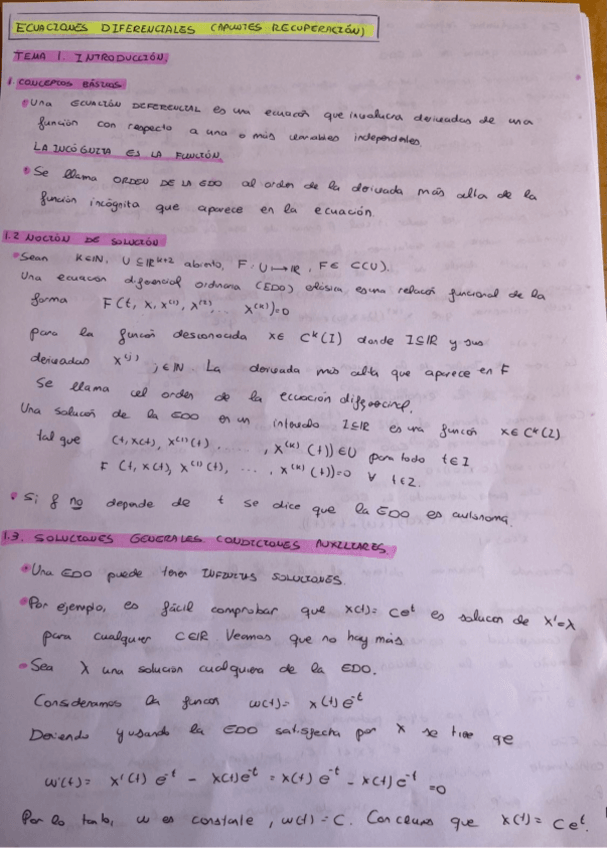 ECUACIONES DIFERENCIALES (APUNTES RECUPERACIÓN)
TEMA 1. INTRODUCCIÓN.
1. CONCEPTOS BÁSICOS
• Una ECUACIÓN DEFERENCIAL es una ecuación que involucra derivadas de una
función con respecto a una o más variables independientes.
LA INCÓGNITA ES LA FUNCIÓN.
• Se llama ORDEN DE LA EDO al orden de la derivada más alta de la
función incógnita que aparece en la ecuación.
1.2 NOCIÓN DE SOLUCIÓN
• Sean K∈ℕ, U⊆ℝᴷ⁺² abierto, F: U→ℝ, F∈ C(U).
Una ecuación diferencial ordinaria (EDO) clásica, es una relación funcional de la
forma F(t, x, x⁽¹⁾, x⁽²⁾, ... x⁽ᴷ⁾)=0
para la función desconocida x∈ Cᴷ(I) donde I⊆ℝ y sus
derivadas x⁽ʲ⁾, j∈ℕ. La derivada más alta que aparece en F
Se llama el orden de la ecuación diferencial.
Una solución de la EDO en un intervalo I⊆ℝ es una función x∈Cᴷ(I)
tal que (t, x(t), x⁽¹⁾(t), ..., x⁽ᴷ⁾(t))∈U para todo t∈I
F(t, x(t), x⁽¹⁾(t), ..., x⁽ᴷ⁾(t))=0 ∀ t∈I.
• Si f no depende de t se dice que la EDO es autónoma.
1.3. SOLUCIONES GENERALES. CONDICIONES AUXILIARES.
• Una EDO puede tener INFINITAS SOLUCIONES.
• Por ejemplo, es fácil comprobar que x(t)= Ceᵗ es solucion de x'=x
para cualquier C∈ℝ. Veamos que no hay más
• Sea x una solución cualquiera de la EDO.
Consideramos la funcion w(t)= x(t)e⁻ᵗ
y usando la EDO satisfecha por x se tiene que
w'(t)= x'(t) e⁻ᵗ - x(t)e⁻ᵗ = x(t) e⁻ᵗ - x(t) e⁻ᵗ =0
Por lo tanto, w es constante, w(t)=C. que x(t)= Ceᵗ.